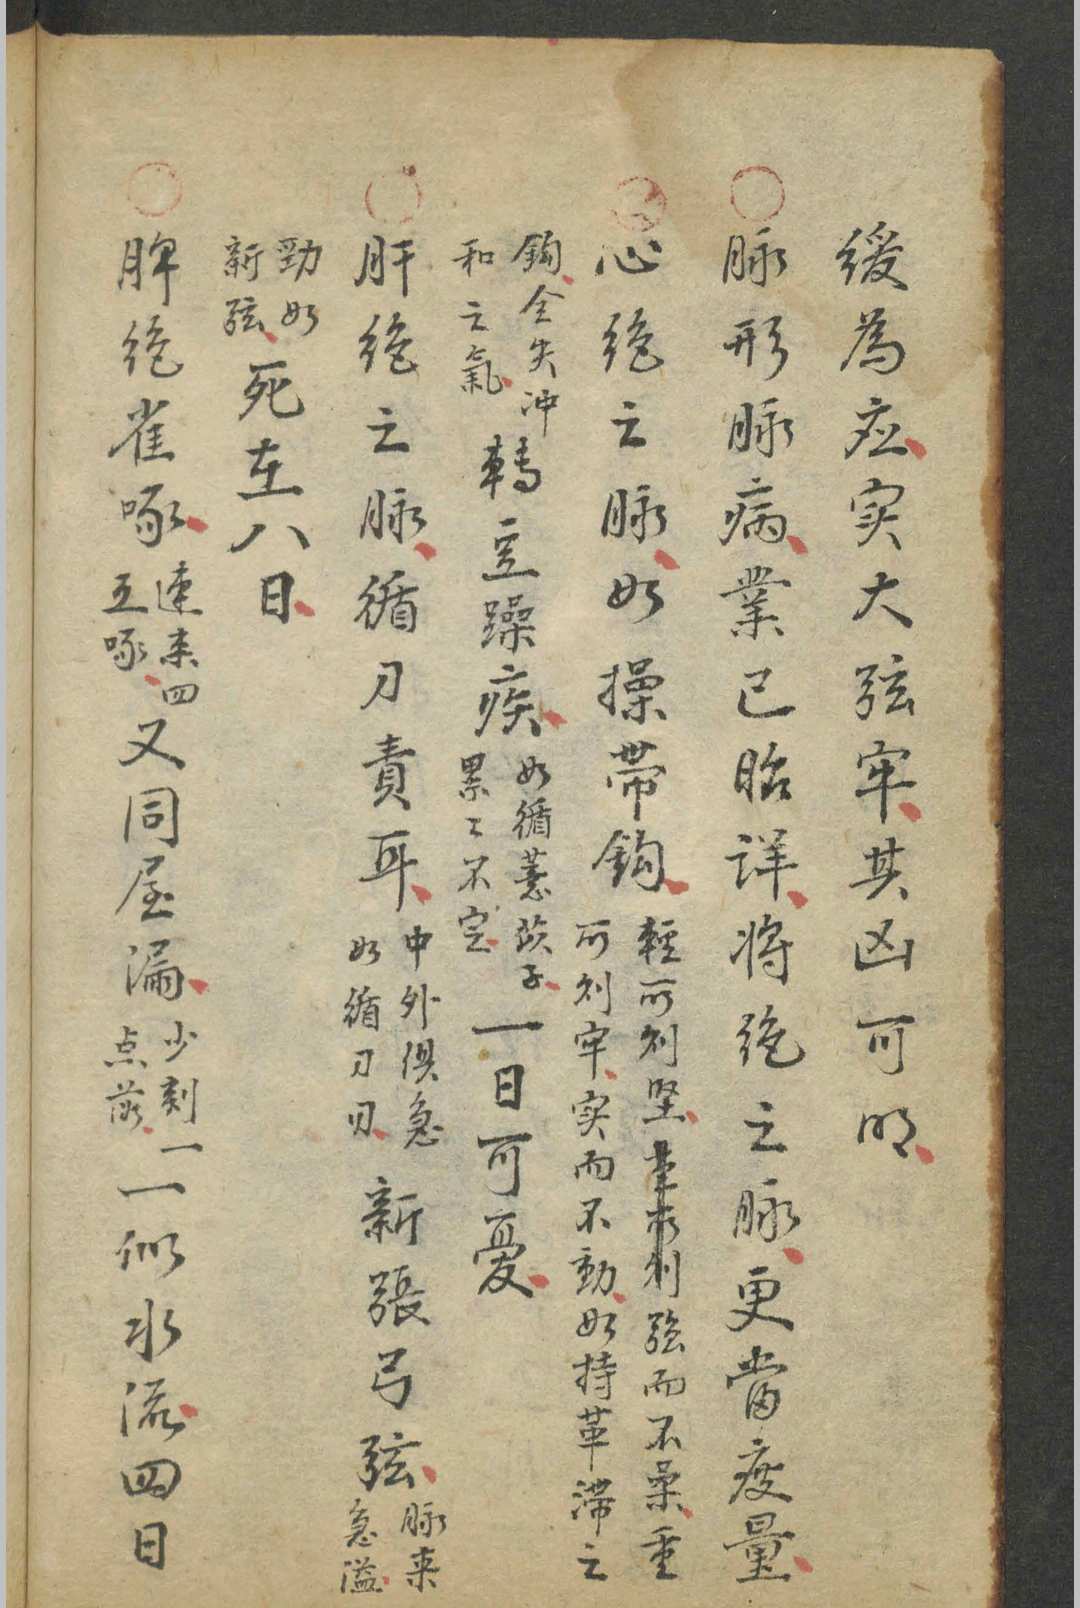 緩為应实大弦牢其凶可明
脉形脉病業已胎详将绝之脉更當度量
心绝之脉如操带鈎輕而刋坚
刋強而不槀重
而刋牢实而不動如持革滞之
鈎全失冲
和之氣轉豆躁疾如循薏苡子
累〻不定一日可憂
肝绝之脉循刀責耳中外俱急
如循刀刃新張弓弦脉来
急溢
勁如
新弦死在八日
脾绝雀啄連来四
五啄又同屋漏少刻一
点落一似水流四日